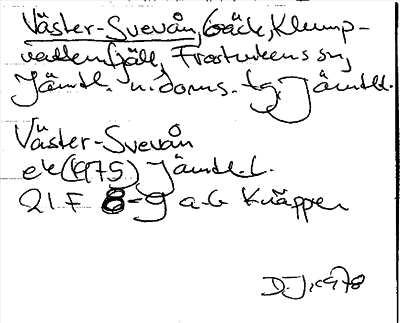 Väster-Svevån, bäck, Klump-
vattenfjäll, Frostvikens sn,
Jämtl. n. doms. tg, Jämtl.
Väster-Svevån
ek (1975) Jämtl. l.
21 F 8-9 a-b Knäppen
D.J. 1978